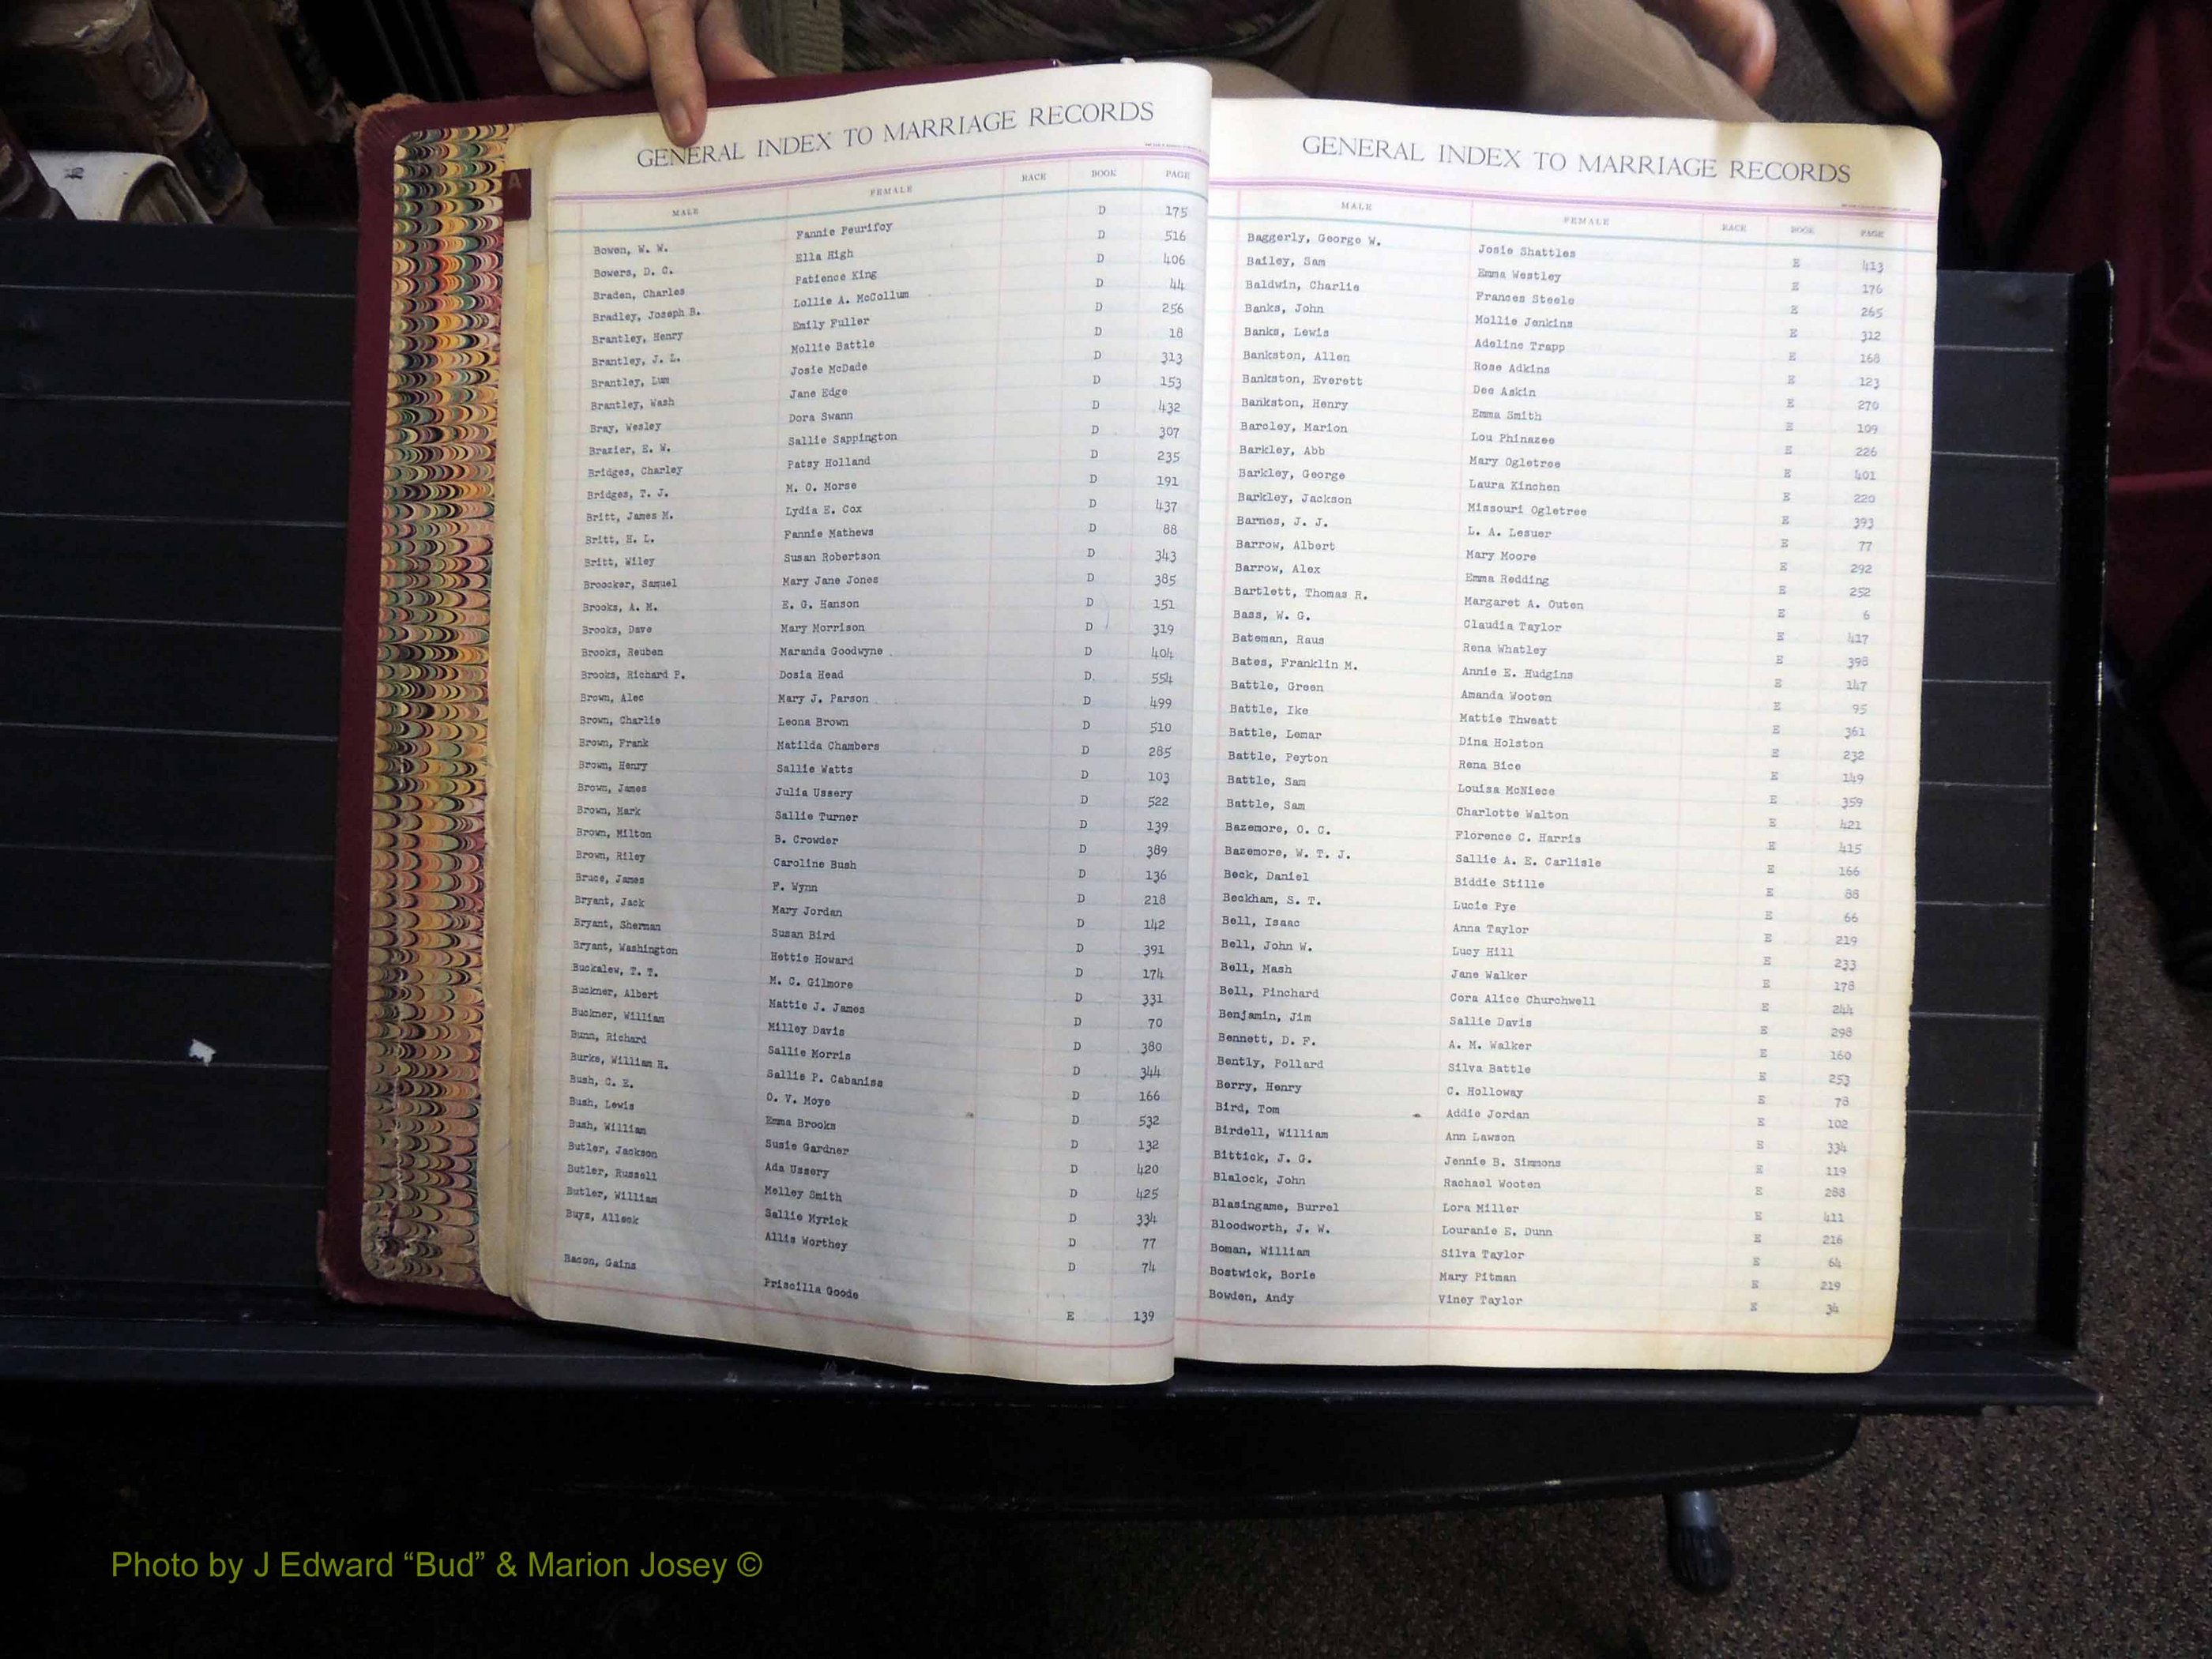 GENERAL INDEX TO MARRIAGE RECORDS
MALE FEMALE RACE BOOK PAGE
Bowen, W. W. Fannie Peurifoy D 175
Bowers, D. C. Ella High D 516
Braden, Charles Patience King D 406
Bradley, Joseph B. Lollie A. McCollum D 44
Brantley, Henry Emily Fuller D 256
Brantley, J. L. Mollie Battle D 18
Brantley, Lum Josie McDade D 313
Brantley, Wash Jane Edge D 153
Bray, Wesley Dora Swann D 432
Brazier, E. W. Sallie Sappington D 307
Bridges, Charley Patsy Holland D 235
Bridges, T. J. M. O. Morse D 191
Britt, James M. Lydia E. Cox D 437
Britt, H. L. Fannie Mathews D 88
Britt, Wiley Susan Robertson D 343
Broocker, Samuel Mary Jane Jones D 385
Brooks, A. M. E. G. Hanson D 151
Brooks, Dave Mary Morrison D 319
Brooks, Reuben Maranda Goodwyne D 404
Brooks, Richard P. Dosia Head D. 554
Brown, Alec Mary J. Parson D 499
Brown, Charlie Leona Brown D 510
Brown, Frank Matilda Chambers D 285
Brown, Henry Sallie Watts D 103
Brown, James Julia Ussery D 522
Brown, Mark Sallie Turner D 139
Brown, Milton B. Crowder D 389
Brown, Riley Caroline Bush D 136
Bruce, James F. Wynn D 218
Bryant, Jack Mary Jordan D 142
Bryant, Sherman Susan Bird D 391
Bryant, Washington Hettie Howard D 174
Buckalew, T. T. M. C. Gilmore D 331
Buckner, Albert Mattie J. James D 70
Buckner, William Milley Davis D 380
Bunn, Richard Sallie Morris D 344
Burke, William H. Sallie P. Cabaniss D 166
Bush, C. E. O. V. Moye D 532
Bush, Lewis Emma Brooks D 132
Bush, William Susie Gardner D 420
Butler, Jackson Ada Ussery D 425
Butler, Russell Melley Smith D 334
Butler, William Sallie Myrick D 77
Buys, Alleck Allis Worthey D 74
Bacon, Gains Priscilla Goode E 139
GENERAL INDEX TO MARRIAGE RECORDS
MALE FEMALE RACE BOOK PAGE
Baggerly, George W. Josie Shattles E 413
Bailey, Sam Emma Westley E 176
Baldwin, Charlie Frances Steele E 265
Banks, John Mollie Jenkins E 312
Banks, Lewis Adeline Trapp E 168
Bankston, Allen Rose Adkins E 123
Bankston, Everett Dee Askin E 270
Bankston, Henry Emma Smith E 109
Barcley, Marion Lou Phinazee E 226
Barkley, Abb Mary Ogletree E 401
Barkley, George Laura Kinchen E 220
Barkley, Jackson Missouri Ogletree E 393
Barnes, J. J. L. A. Lesuer E 77
Barrow, Albert Mary Moore E 292
Barrow, Alex Emma Redding E 252
Bartlett, Thomas R. Margaret A. Outen E 6
Bass, W. G. Claudia Taylor E 417
Bateman, Raus Rena Whatley E 398
Bates, Franklin M. Annie E. Hudgins E 147
Battle, Green Amanda Wooten E 95
Battle, Ike Mattie Thweatt E 361
Battle, Lomar Dina Holston E 232
Battle, Peyton Rena Bice E 149
Battle, Sam Louisa McNiece E 359
Battle, Sam Charlotte Walton E 421
Bazemore, O. C. Florence C. Harris E 415
Bazemore, W. T. J. Sallie A. E. Carlisle E 166
Beck, Daniel Biddie Stille E 88
Beckham, S. T. Lucie Pye E 66
Bell, Isaac Anna Taylor E 219
Bell, John W. Lucy Hill E 233
Bell, Mash Jane Walker E 178
Bell, Pinchard Cora Alice Churchwell E 244
Benjamin, Jim Sallie Davis E 298
Bennett, D. F. A. M. Walker E 160
Bently, Pollard Silva Battle E 253
Berry, Henry C. Holloway E 78
Bird, Tom Addie Jordan E 102
Birdell, William Ann Lawson E 334
Bittick, J. G. Jennie B. Simmons E 119
Blalock, John Rachael Wooten E 288
Blasingame, Burrel Lora Miller E 411
Bloodworth, J. W. Louranie E. Dunn E 216
Boman, William Silva Taylor E 64
Bostwick, Borie Mary Pitman E 219
Bowden, Andy Viney Taylor E 34
Photo by J Edward “Bud” & Marion Josey ©